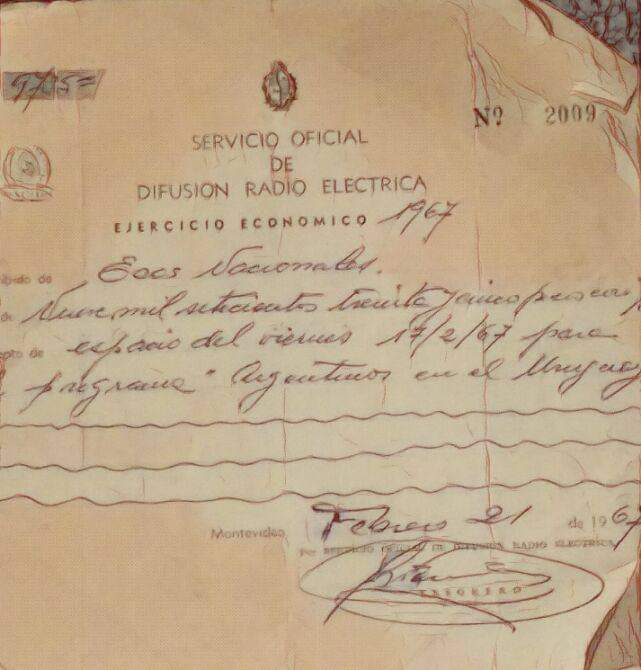 9735=
Nº 2009
SERVICIO OFICIAL
DE
DIFUSION RADIO ELECTRICA
EJERCICIO ECONOMICO 1967
Ecos Nacionales.
de Nueve mil setecientos treinta y cinco pesos con
espacio del viernes 17/2/67 para
programa "Argentinos en el Uruguay
Montevideo Febrero 21 de 1967
Por SERVICIO OFICIAL DE DIFUSION RADIO ELECTRICA
TESORERO